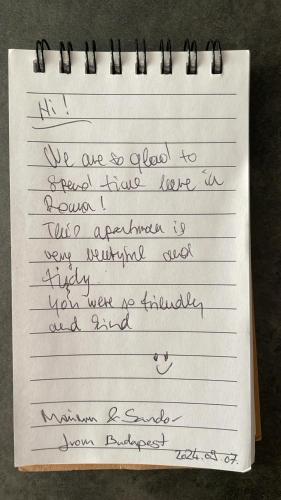 Hi!
We are so glad to
spend time here in
Roma!
This apartman is
very beutyful and
tidy.
You were so friendly
and kind
& Sandor
from Budapest
2024.09.07.